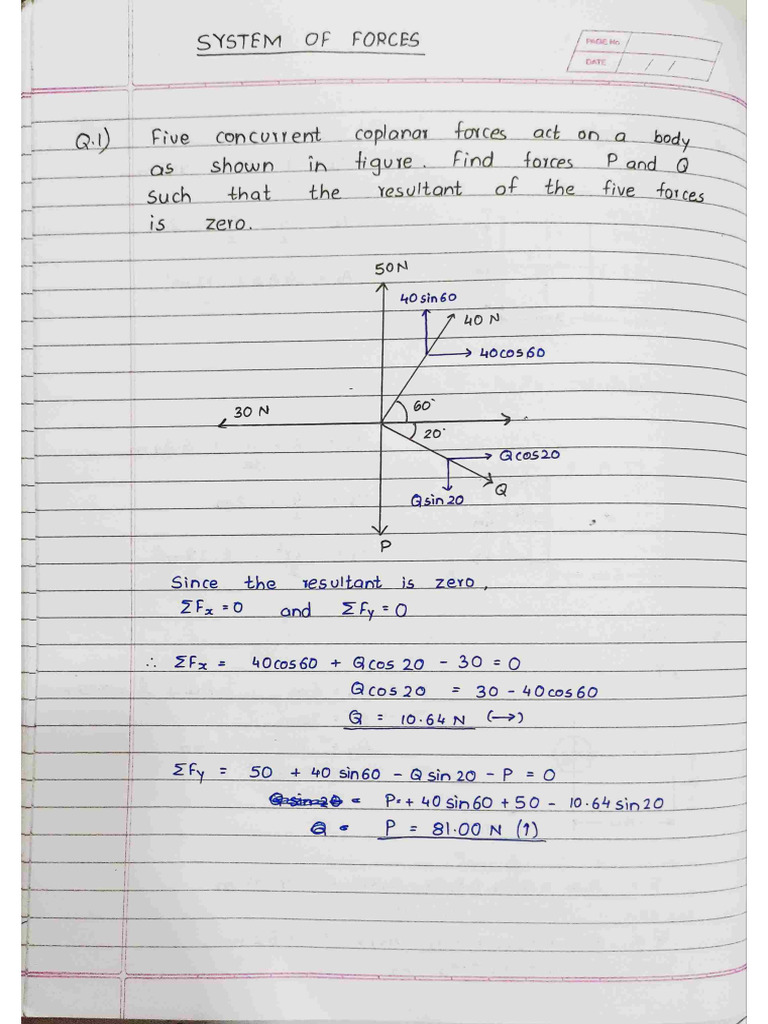 SYSTEM OF FORCES
PAGE No
DATE / /
Q.1) Five concurrent coplanar forces act on a body
as shown in figure. Find forces P and Q
such that the resultant of the five forces
is zero.
50N
40 sin60
40 N
40cos60
30 N
60°
20°
Qcos20
Q
Qsin 20
P
Since the resultant is zero,
ΣFx = 0 and ΣFy = 0
∴ ΣFx = 40cos60 + Qcos 20 - 30 = 0
Qcos20 = 30 - 40cos60
Q = 10.64 N (→)
ΣFy = 50 + 40 sin60 - Qsin 20 - P = 0
P = + 40 sin60 + 50 - 10.64 sin20
Q = P = 81.00 N (↑)